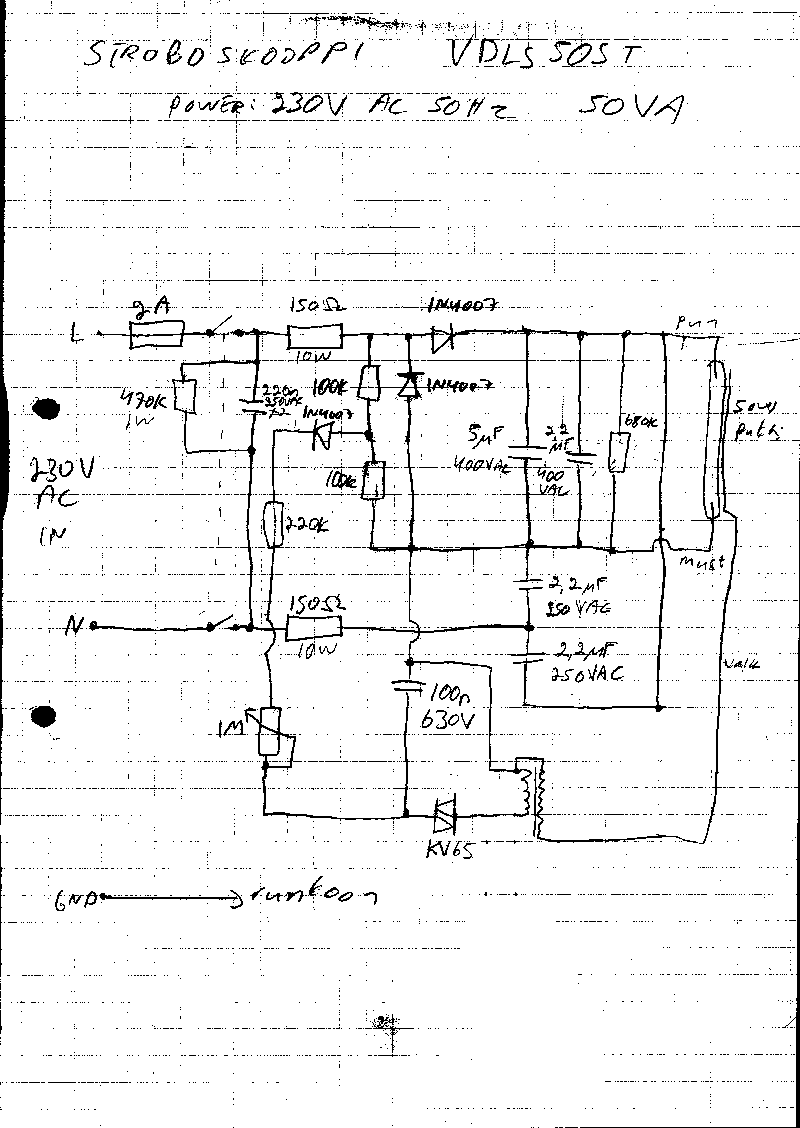 STROBOSKOOPPI VDLS 50ST
POWER: 230V AC 50Hz 50VA
2A
150Ω
10W
1N4007
L
Pun
470K
1W
220n
250VAC
X2
100K
1N4007
1N4007
50W
Putki
5µF
400VAC
2,2
µF
400
VAC
680K
100K
230V
AC
IN
220K
must
2,2µF
250VAC
150Ω
10W
N
2,2µF
250VAC
valk
100n
630V
1M
KV65
GND runkoon